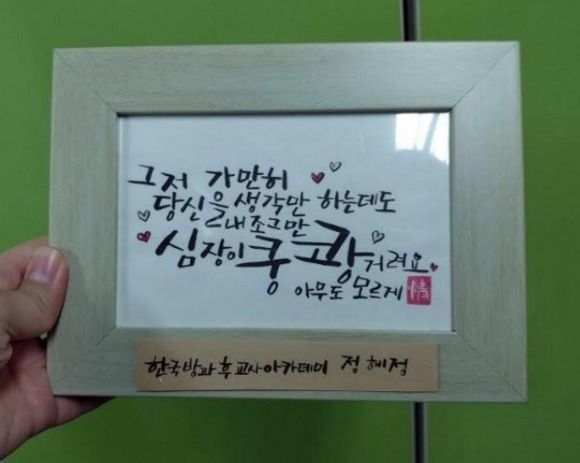 그저 가만히
당신을 생각만 하는데도
내 조그만
심장이 쿵쾅거려요
아무도 모르게
한국방과후교사아카데미 정혜정